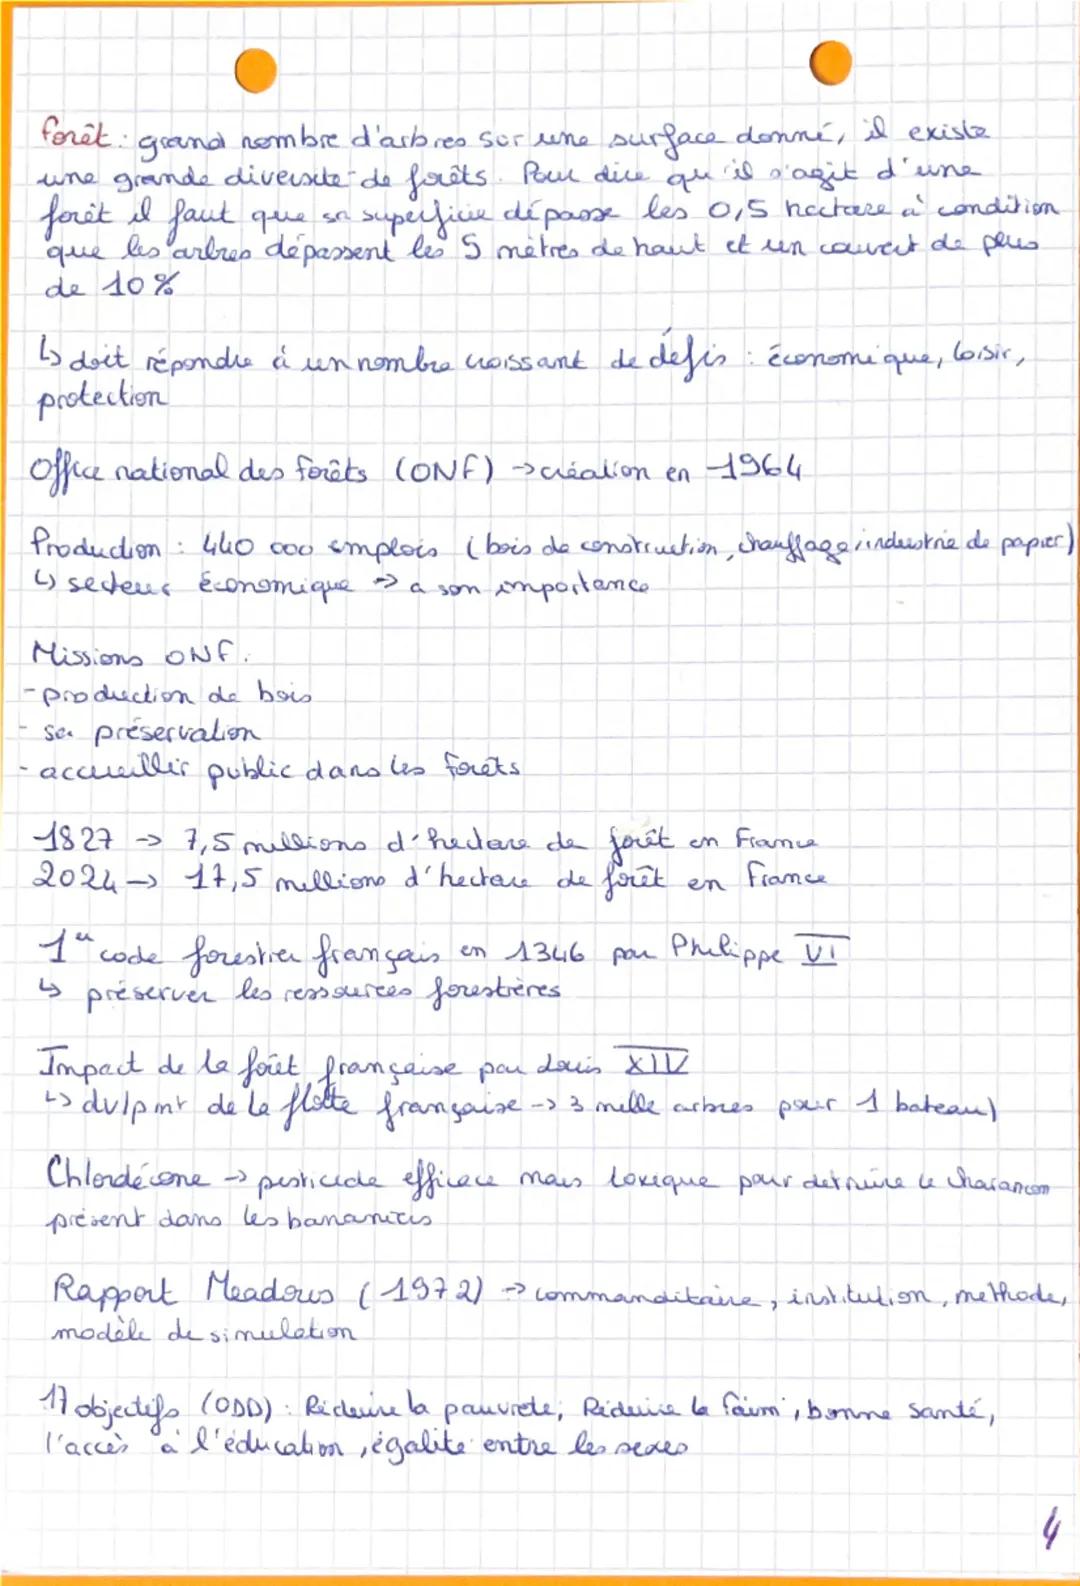 forêt : grand nombre d'arbres sur une surface donné, il existe
une grande diversité de forêts. Pour dire qu'il s'agit d'une
forêt il faut que sa superficie dépasse les 0,5 hectare à condition
que les arbres dépassent les 5 mètres de haut et un couvert de plus
de 10 %
↳ doit répondre à un nombre croissant de défis : économique, loisir,
protection
Office national des forêts (ONF) → création en 1964
Production : 440 000 emplois (bois de construction, chauffage, industrie de papier)
↳ secteur économique → a son importance
Missions ONF :
- production de bois
- sa préservation
- accueillir public dans les forêts
1827 → 7,5 millions d'hectare de forêt en France
2024 → 17,5 millions d'hectare de forêt en France
1er code forestier français en 1346 par Philippe VI
↳ préserver les ressources forestières
Impact de la forêt française par Louis XIV
↳ dvlpmt de la flotte française → 3 mille arbres pour 1 bateau)
Chlordécone → pesticide efficace mais toxique pour détruire le charançon
présent dans les bananiers
Rapport Meadows (1972) → commanditaire, institution, méthode,
modèle de simulation
17 objectifs (ODD) : Réduire la pauvreté, Réduire la faim, bonne santé,
l'accès à l'éducation, égalité entre les sexes
4